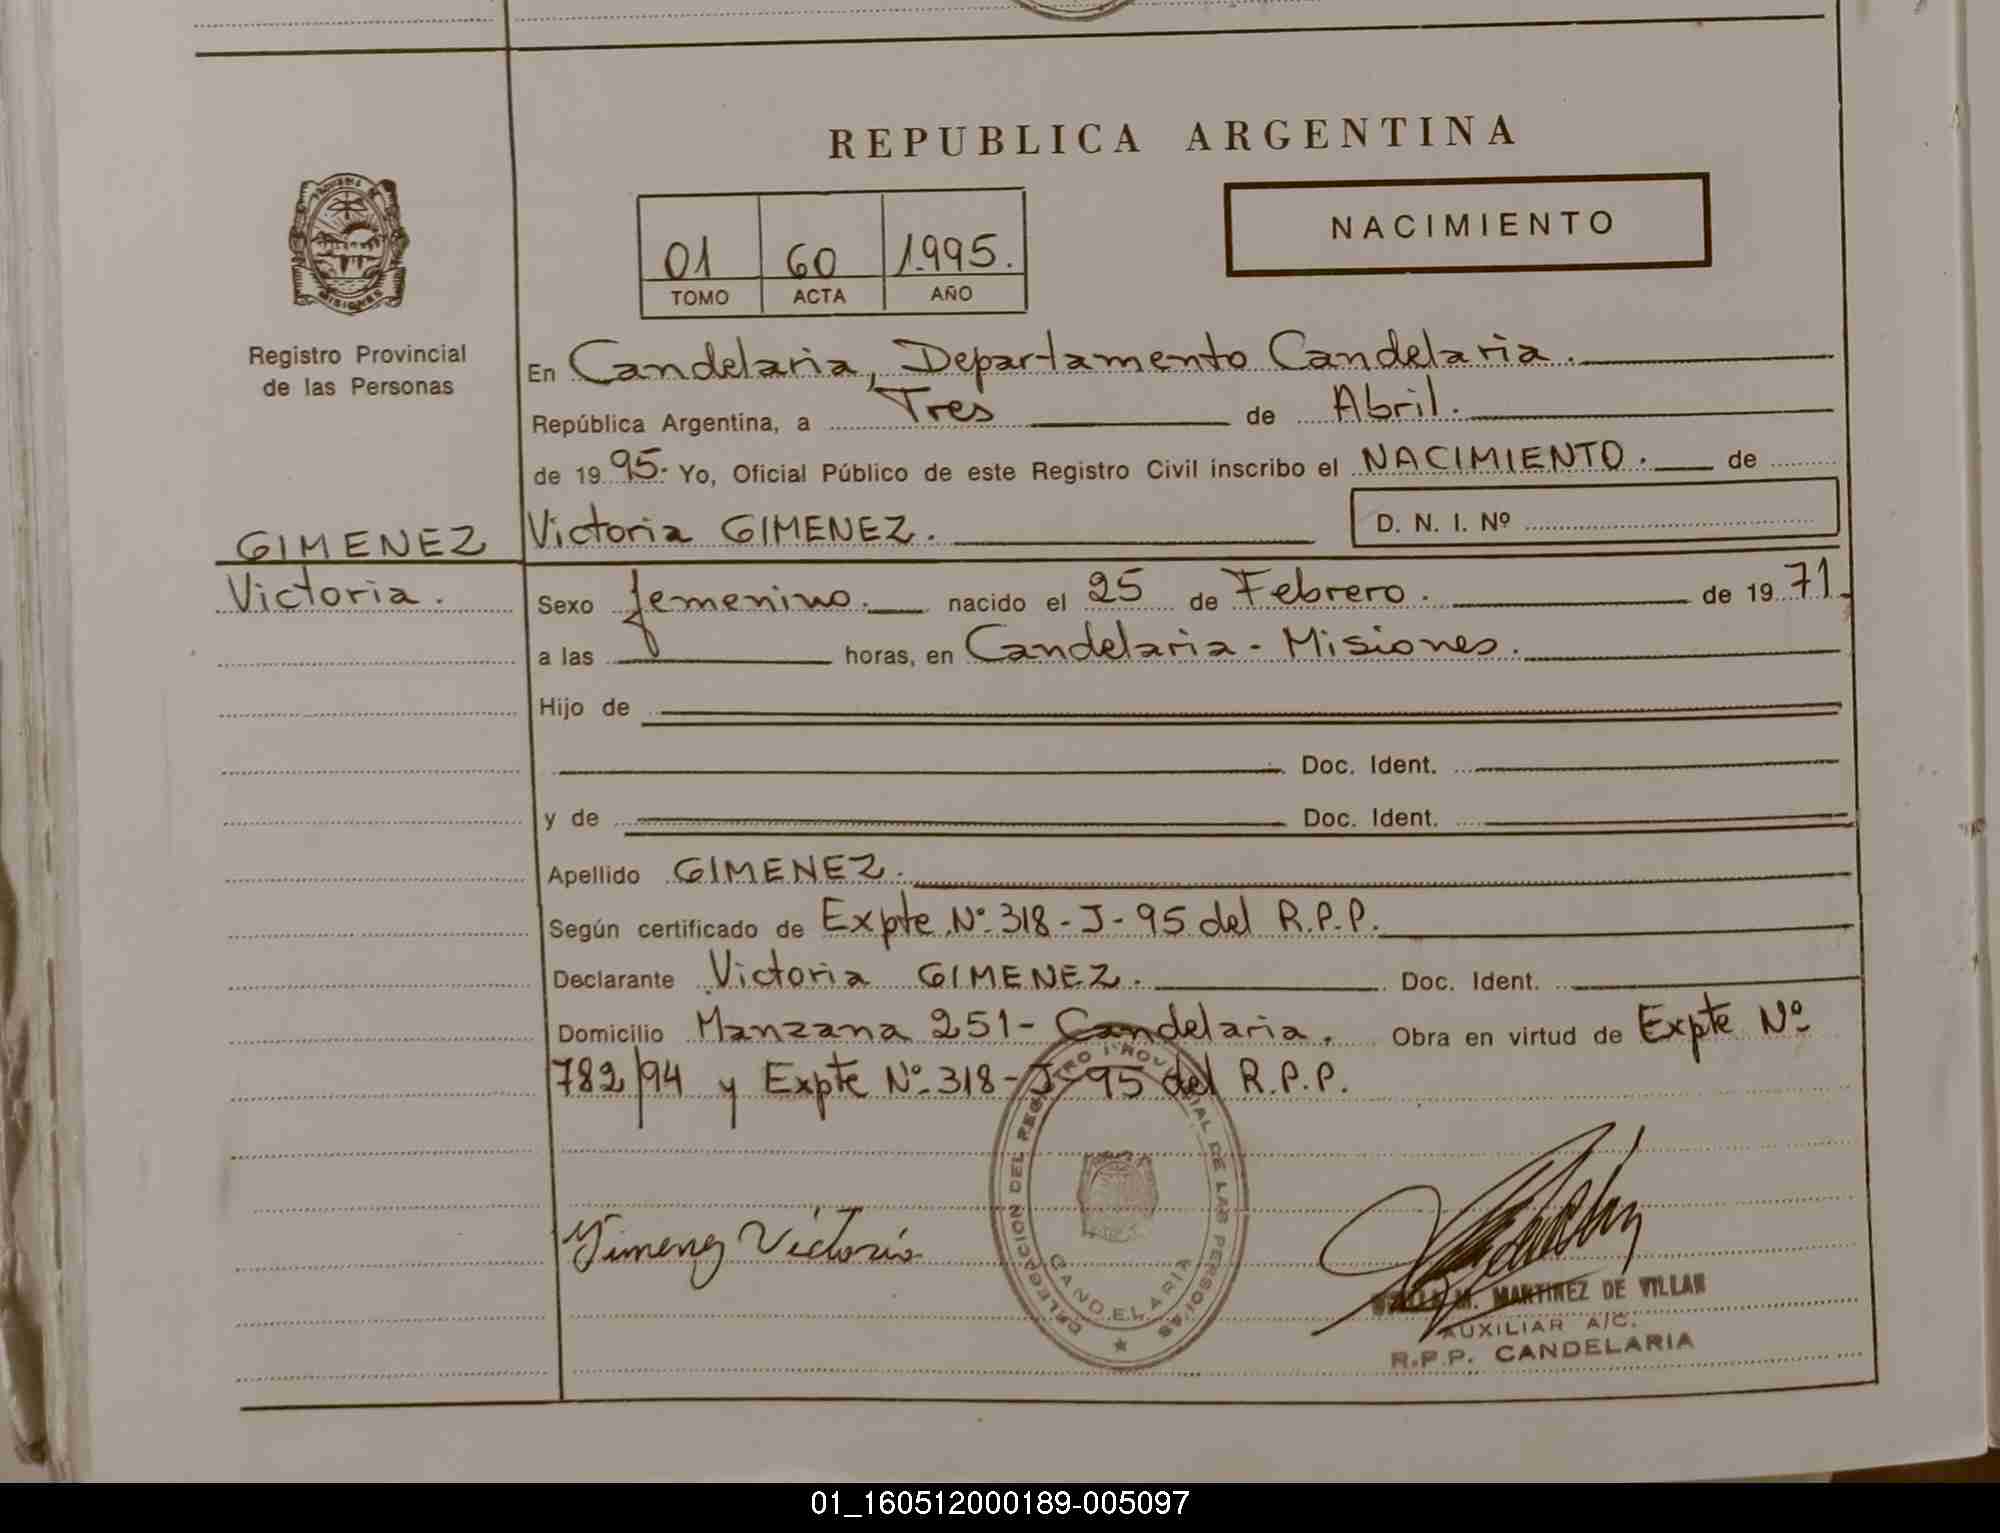 REPUBLICA ARGENTINA
NACIMIENTO
01 60 1.995.
TOMO ACTA AÑO
PROVINCIA DE
MISIONES
Registro Provincial
de las Personas
En Candelaria, Departamento Candelaria.
República Argentina, a Tres de Abril.
de 1995. Yo, Oficial Público de este Registro Civil inscribo el NACIMIENTO. de
GIMENEZ
Victoria.
Victoria GIMENEZ. D. N. I. Nº
Sexo femenino. nacido el 25 de Febrero. de 1971.
a las horas, en Candelaria - Misiones.
Hijo de
Doc. Ident.
y de Doc. Ident.
Apellido GIMENEZ.
Según certificado de Expte. Nº 318 - J - 95 del R.P.P.
Declarante Victoria GIMENEZ. Doc. Ident.
Domicilio Manzana 251 - Candelaria. Obra en virtud de Expte Nº
782/94 y Expte Nº 318 - J - 95 del R.P.P.
DELEGACION DEL REGISTRO PROVINCIAL DE LAS PERSONAS
CANDELARIA
Gimenez Victoria
M. MARTINEZ DE VILLAR
AUXILIAR A/C.
R.P.P. CANDELARIA
01_160512000189-005097